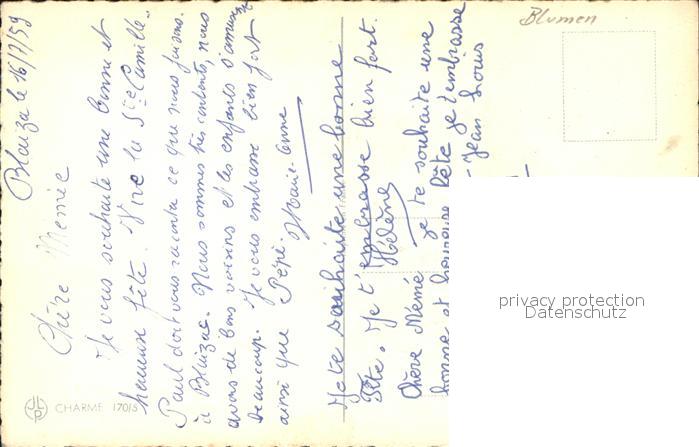 Blaizac le 16/7/59
Chère Mémée
Je vous souhaite une bonne et
heureuse fête. Vive la Ste Camille.
Paul doit vous raconter ce que nous faisons
à Blaizac. Nous sommes très contents, nous
avons de bons voisins et les enfants s'amusent
beaucoup. Je vous embrasse bien fort
ainsi que Pépé.
Marie-Anne
Je te souhaite une bonne
Fête. Je t'embrasse bien fort.
Hélène
Chère Mémé je te souhaite une
bonne et heureuse fête je t'embrasse
Jean Louis
Blumen
CHARME 170/5
privacy protection
Datenschutz